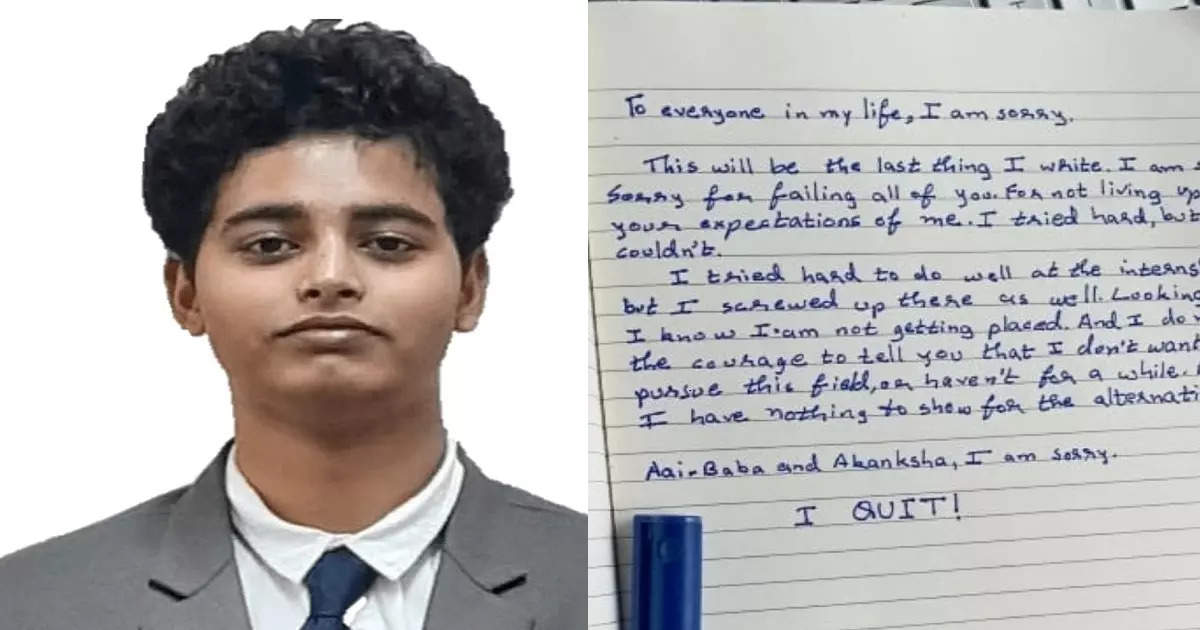 To everyone in my life, I am sorry.
This will be the last thing I write. I am
Sorry for failing all of you. For not living up
your expectations of me. I tried hard, but
couldn't.
I tried hard to do well at the interns
but I screwed up there as well. Looking
I know I am not getting placed. And I do
the courage to tell you that I don't want
pursue this field, or haven't for a while.
I have nothing to show for the alternati
Aai-Baba and Akanksha, I am sorry.
I QUIT!